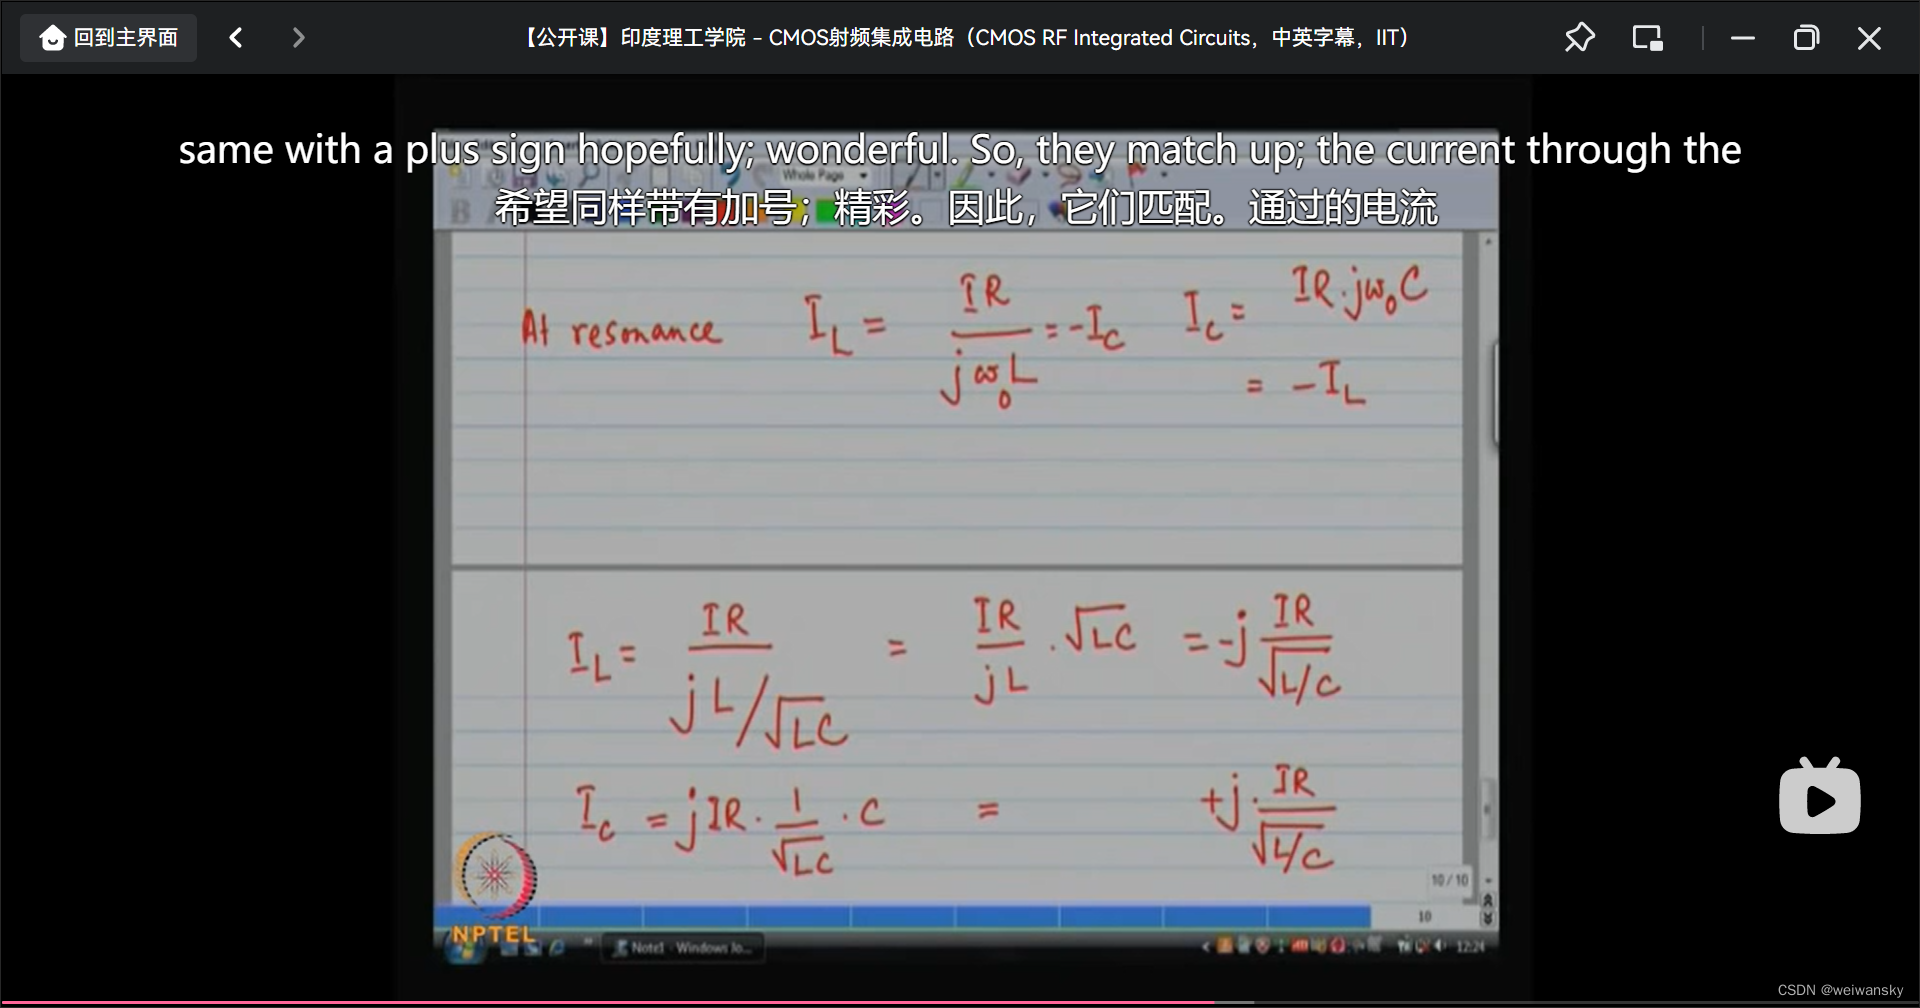 回到主界面
【公开课】印度理工学院 - CMOS射频集成电路（CMOS RF Integrated Circuits，中英字幕，IIT）
same with a plus sign hopefully; wonderful. So, they match up; the current through the
希望同样带有加号；精彩。因此，它们匹配。通过的电流
Whole Page
At resonance I_L = IR / jω₀L = -I_C I_C = IR·jω₀C
= -I_L
I_L = IR / (jL/√LC) = IR / jL · √LC = -j IR / √L/C
I_C = jIR · 1/√LC · C = +j · IR / √L/C
10/10
10
NPTEL
Note1 - Windows Jo...
12:24
CSDN @weiwansky